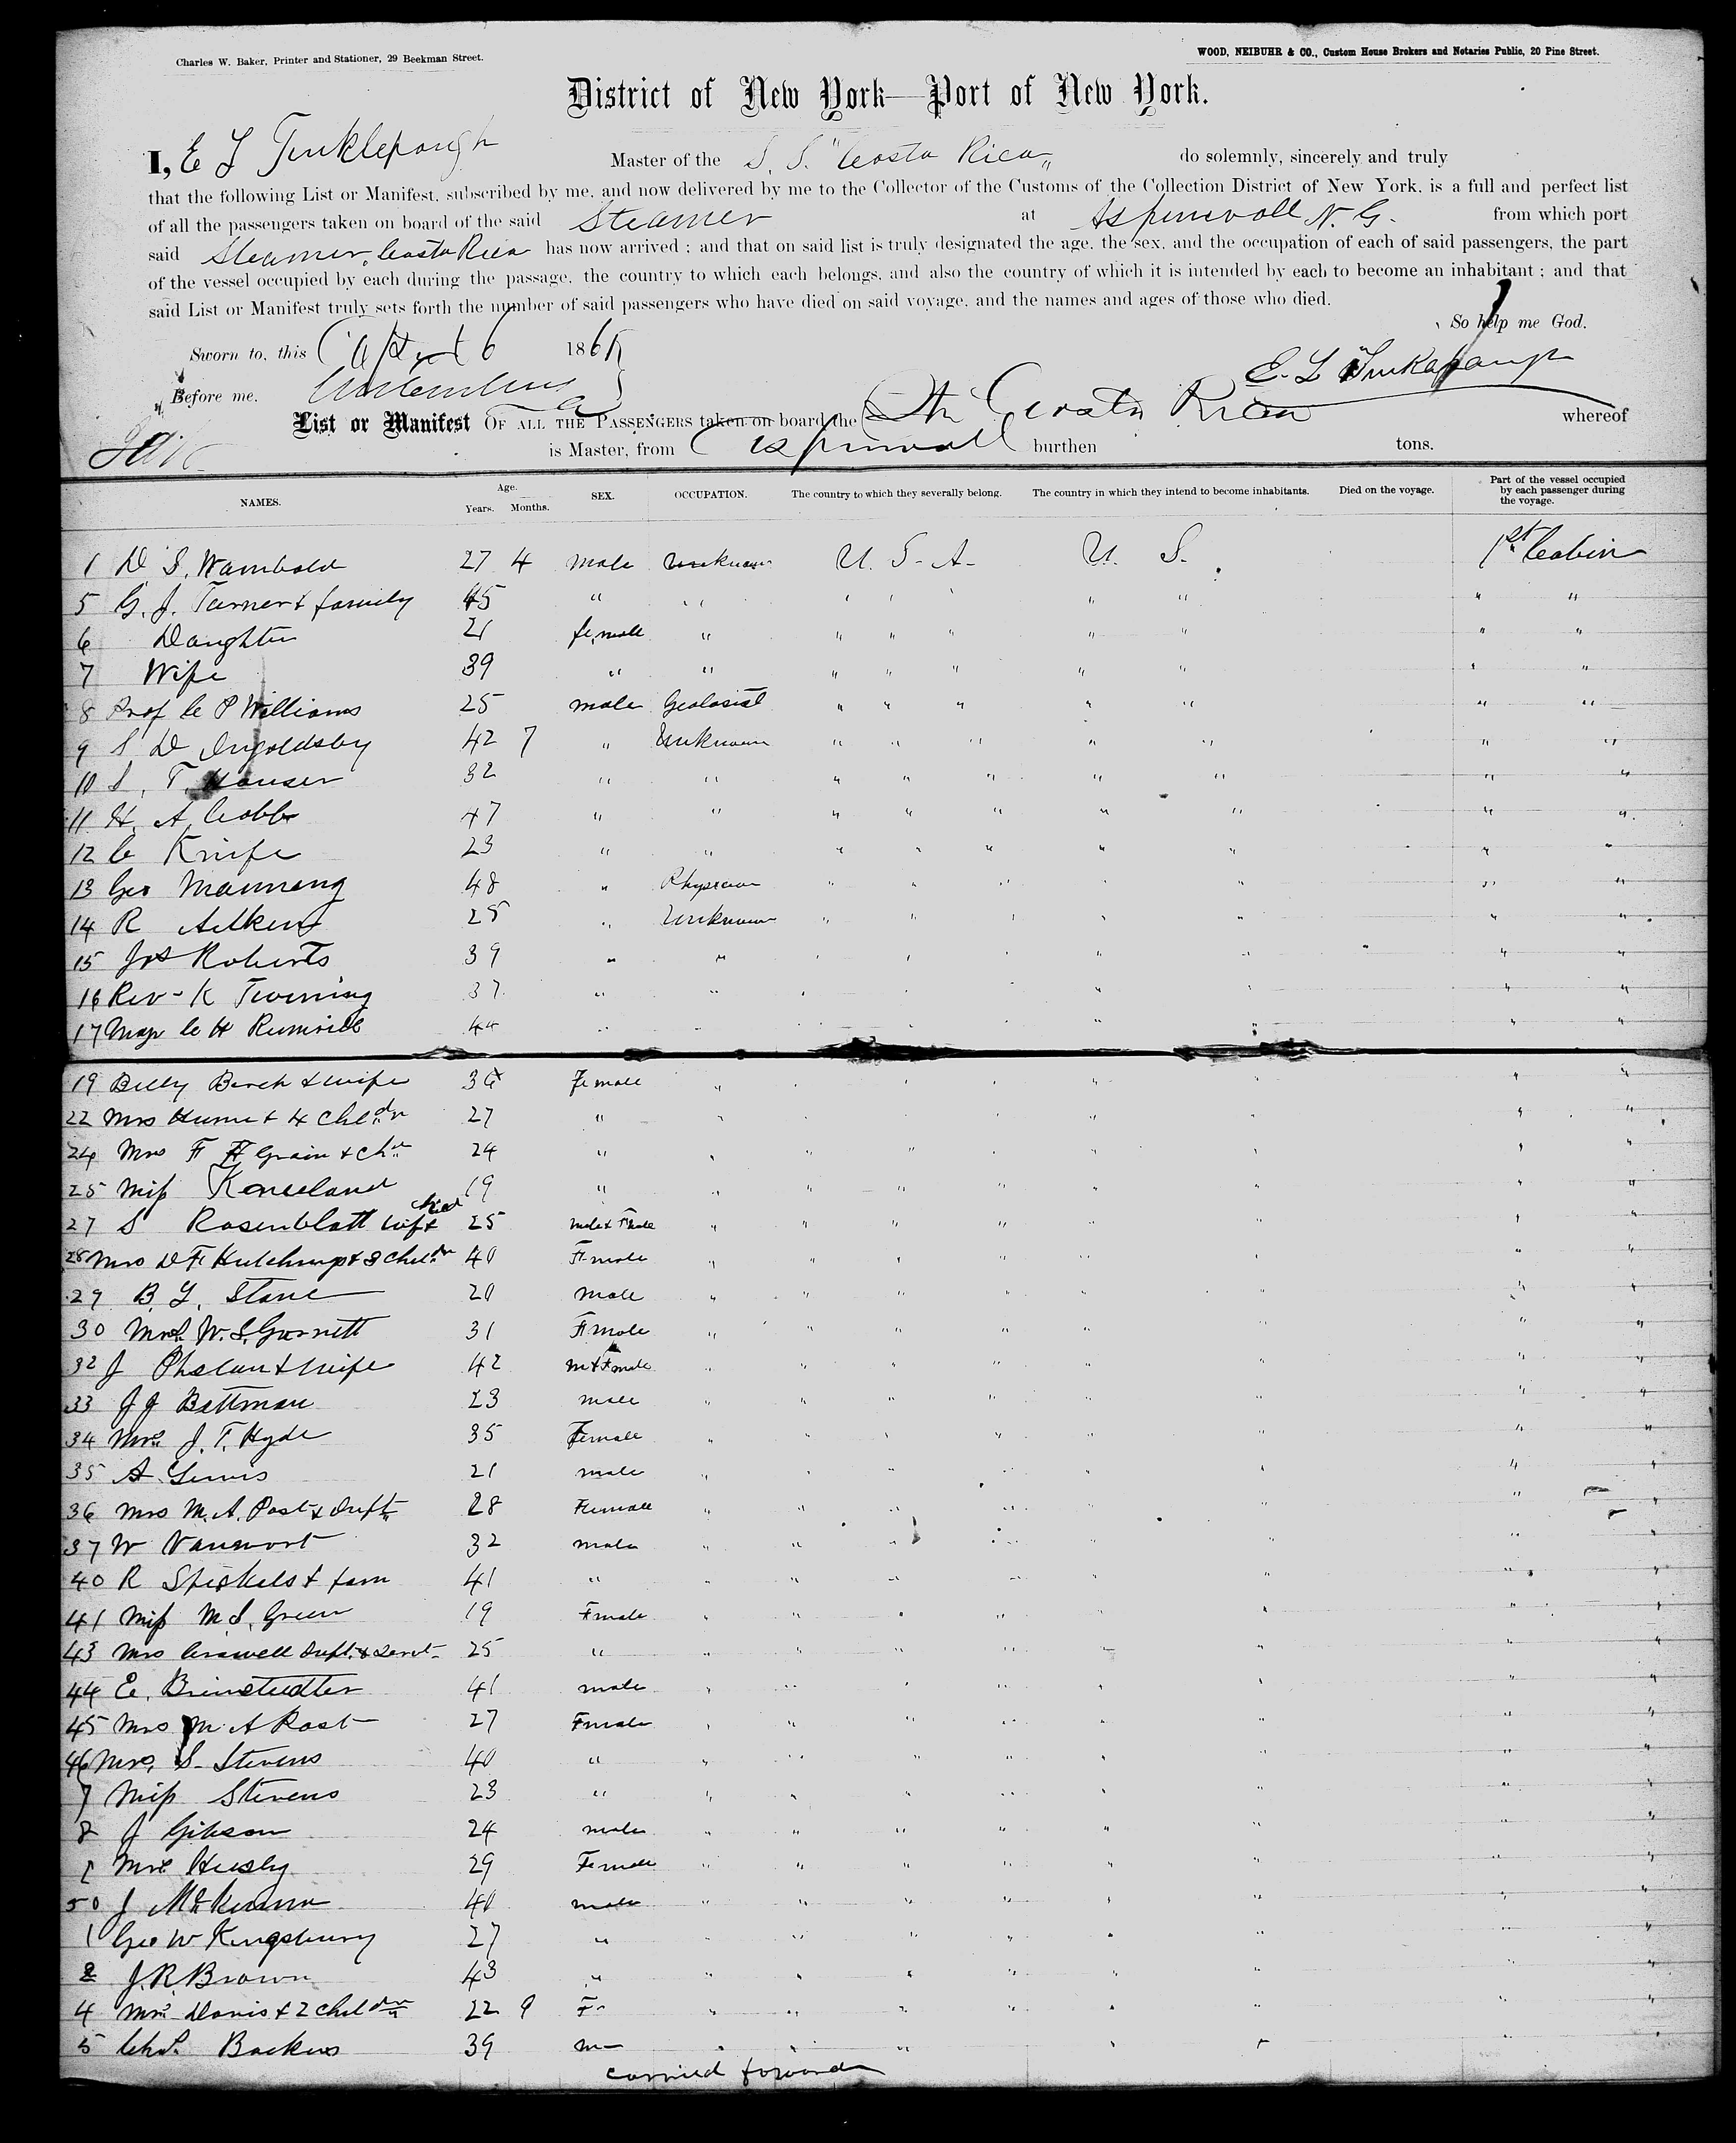 Charles W. Baker, Printer and Stationer, 29 Beekman Street.
WOOD, NEIBUHR & CO., Custom House Brokers and Notaries Public, 20 Pine Street.
District of New York—Port of New York.
I, E L Tinklepaugh Master of the S. S. "Costa Rica" do solemnly, sincerely and truly
that the following List or Manifest, subscribed by me, and now delivered by me to the Collector of the Customs of the Collection District of New York, is a full and perfect list
of all the passengers taken on board of the said Steamer at Aspinwall N. G. from which port
said Steamer Costa Rica has now arrived ; and that on said list is truly designated the age, the sex, and the occupation of each of said passengers, the part
of the vessel occupied by each during the passage, the country to which each belongs, and also the country of which it is intended by each to become an inhabitant ; and that
said List or Manifest truly sets forth the number of said passengers who have died on said voyage, and the names and ages of those who died.
So help me God.
Sworn to, this April 6 186
E. L Tinklepaugh
Before me,
List or Manifest OF ALL THE PASSENGERS taken on board the Str Costa Rica whereof
is Master, from Aspinwall burthen tons.
NAMES. Age. Years. Months. SEX. OCCUPATION. The country to which they severally belong. The country in which they intend to become inhabitants. Died on the voyage. Part of the vessel occupied by each passenger during the voyage.
1 D S. Wambold 27 4 male Unknown U. S. A. U. S. 1st Cabin
5 G. J. Turner & family 45 " " " " " " " " "
6 Daughter 21 female " " " " " " " "
7 Wife 39 " " " " " " " " "
8 Prof C P Williams 25 male Geologist " " " " " " "
9 S D Ingoldsby 42 7 " Unknown " " " " " " "
10 S. T. Hauser 32 " " " " " " " " "
11 H. A Cobb 47 " " " " " " " " "
12 C Knife 23 " " " " " " " " "
13 Geo Manning 48 " Physician " " " " " "
14 R Aitken 25 " Unknown " " " " " "
15 Jos Roberts 39 " " " " " " " "
16 Rev- K Twining 37 " " " " " " "
17 Maj C H Rumrill 44 " " " " " " "
19 Billy Birch & wife 34 Female " " " " " " " "
22 Mrs Hume & 4 Chldn 27 " " " " " " "
24 Mrs F H Grain & Ch 24 " " " " " " " "
25 Miss Kneeland 19 " " " " " " " "
27 S Rosenblatt wife & child 25 male & Fmale " " " " " " "
28 Mrs D F Hutchings & 3 Childn 40 Fmale " " " " " " "
29 B. L. Stone 20 male " " " " " " "
30 Mrs W. S. Garnett 31 Fmale " " " " " " "
32 J Phelan & wife 42 m & Fmale " " " " " " "
33 J J Bettman 23 male " " " " " " "
34 Mrs J. T. Hyde 35 Female " " " " " " "
35 A Lewis 21 male " " " " " " "
36 Mrs M. A. Post & Inft 28 Female " " " " " "
37 W Vanwort 32 male " " " " " " "
40 R Stickels & fam 41 " " " " " " "
41 Miss M. S. Green 19 Fmale " " " " " " "
43 Mrs Criswell Inft & Servt 25 " " " " " " " "
44 E. Brinstudter 41 male " " " " " " "
45 Mrs M A Post 27 Fmale " " " " " " "
46 Mrs. S. Stevens 40 " " " " " " "
7 Miss Stevens 23 " " " " " " "
8 J Gibson 24 male " " " " " " "
Mrs Huesly 29 Female " " " " " " "
50 J McKenna 40 male " " " " " " "
1 Geo W Kingsbury 27 " " " " " " " "
2 J. R. Brown 43 " " " " " " " "
4 Mrs Davis & 2 Childn 22 9 F " " " " " " "
5 Chs. Backus 39 m " " " " "
carried forward